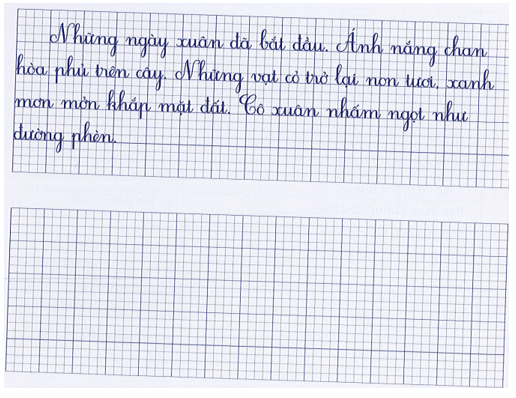 Những ngày xuân đã bắt đầu. Ánh nắng chan
hòa phủ trên cây. Những vạt cỏ trở lại non tươi, xanh
mơn mởn khắp mặt đất. Cỏ xuân nhấm ngọt như
đường phèn.